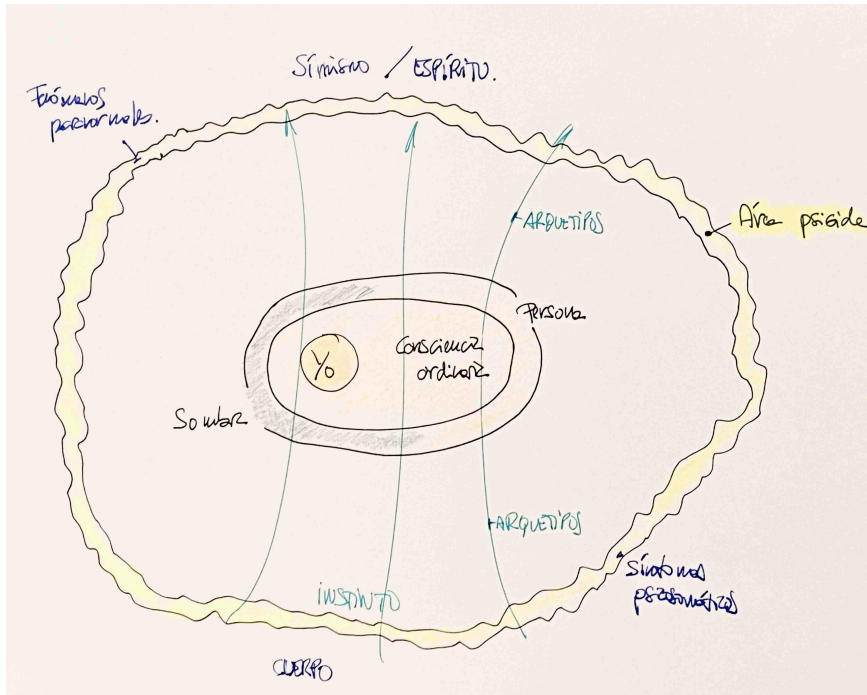 Sí mismo / ESPÍRITU.
Fenómenos
paranormales.
ARQUETIPOS
Área psicoide
Persona
Yo
Consciencia
ordinaria
Sombra
ARQUETIPOS
Síntomas
psicosomáticos
INSTINTO
CUERPO